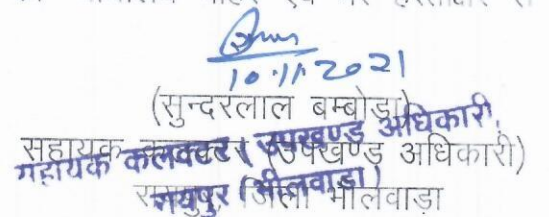 10.11.2021
(सुन्दरलाल बम्बोड़ा)
सहायक कलक्टर (उपखण्ड अधिकारी)
सहायक कलक्टर (उपखण्ड अधिकारी)
रायपुर (भीलवाडा)
जिला भीलवाडा